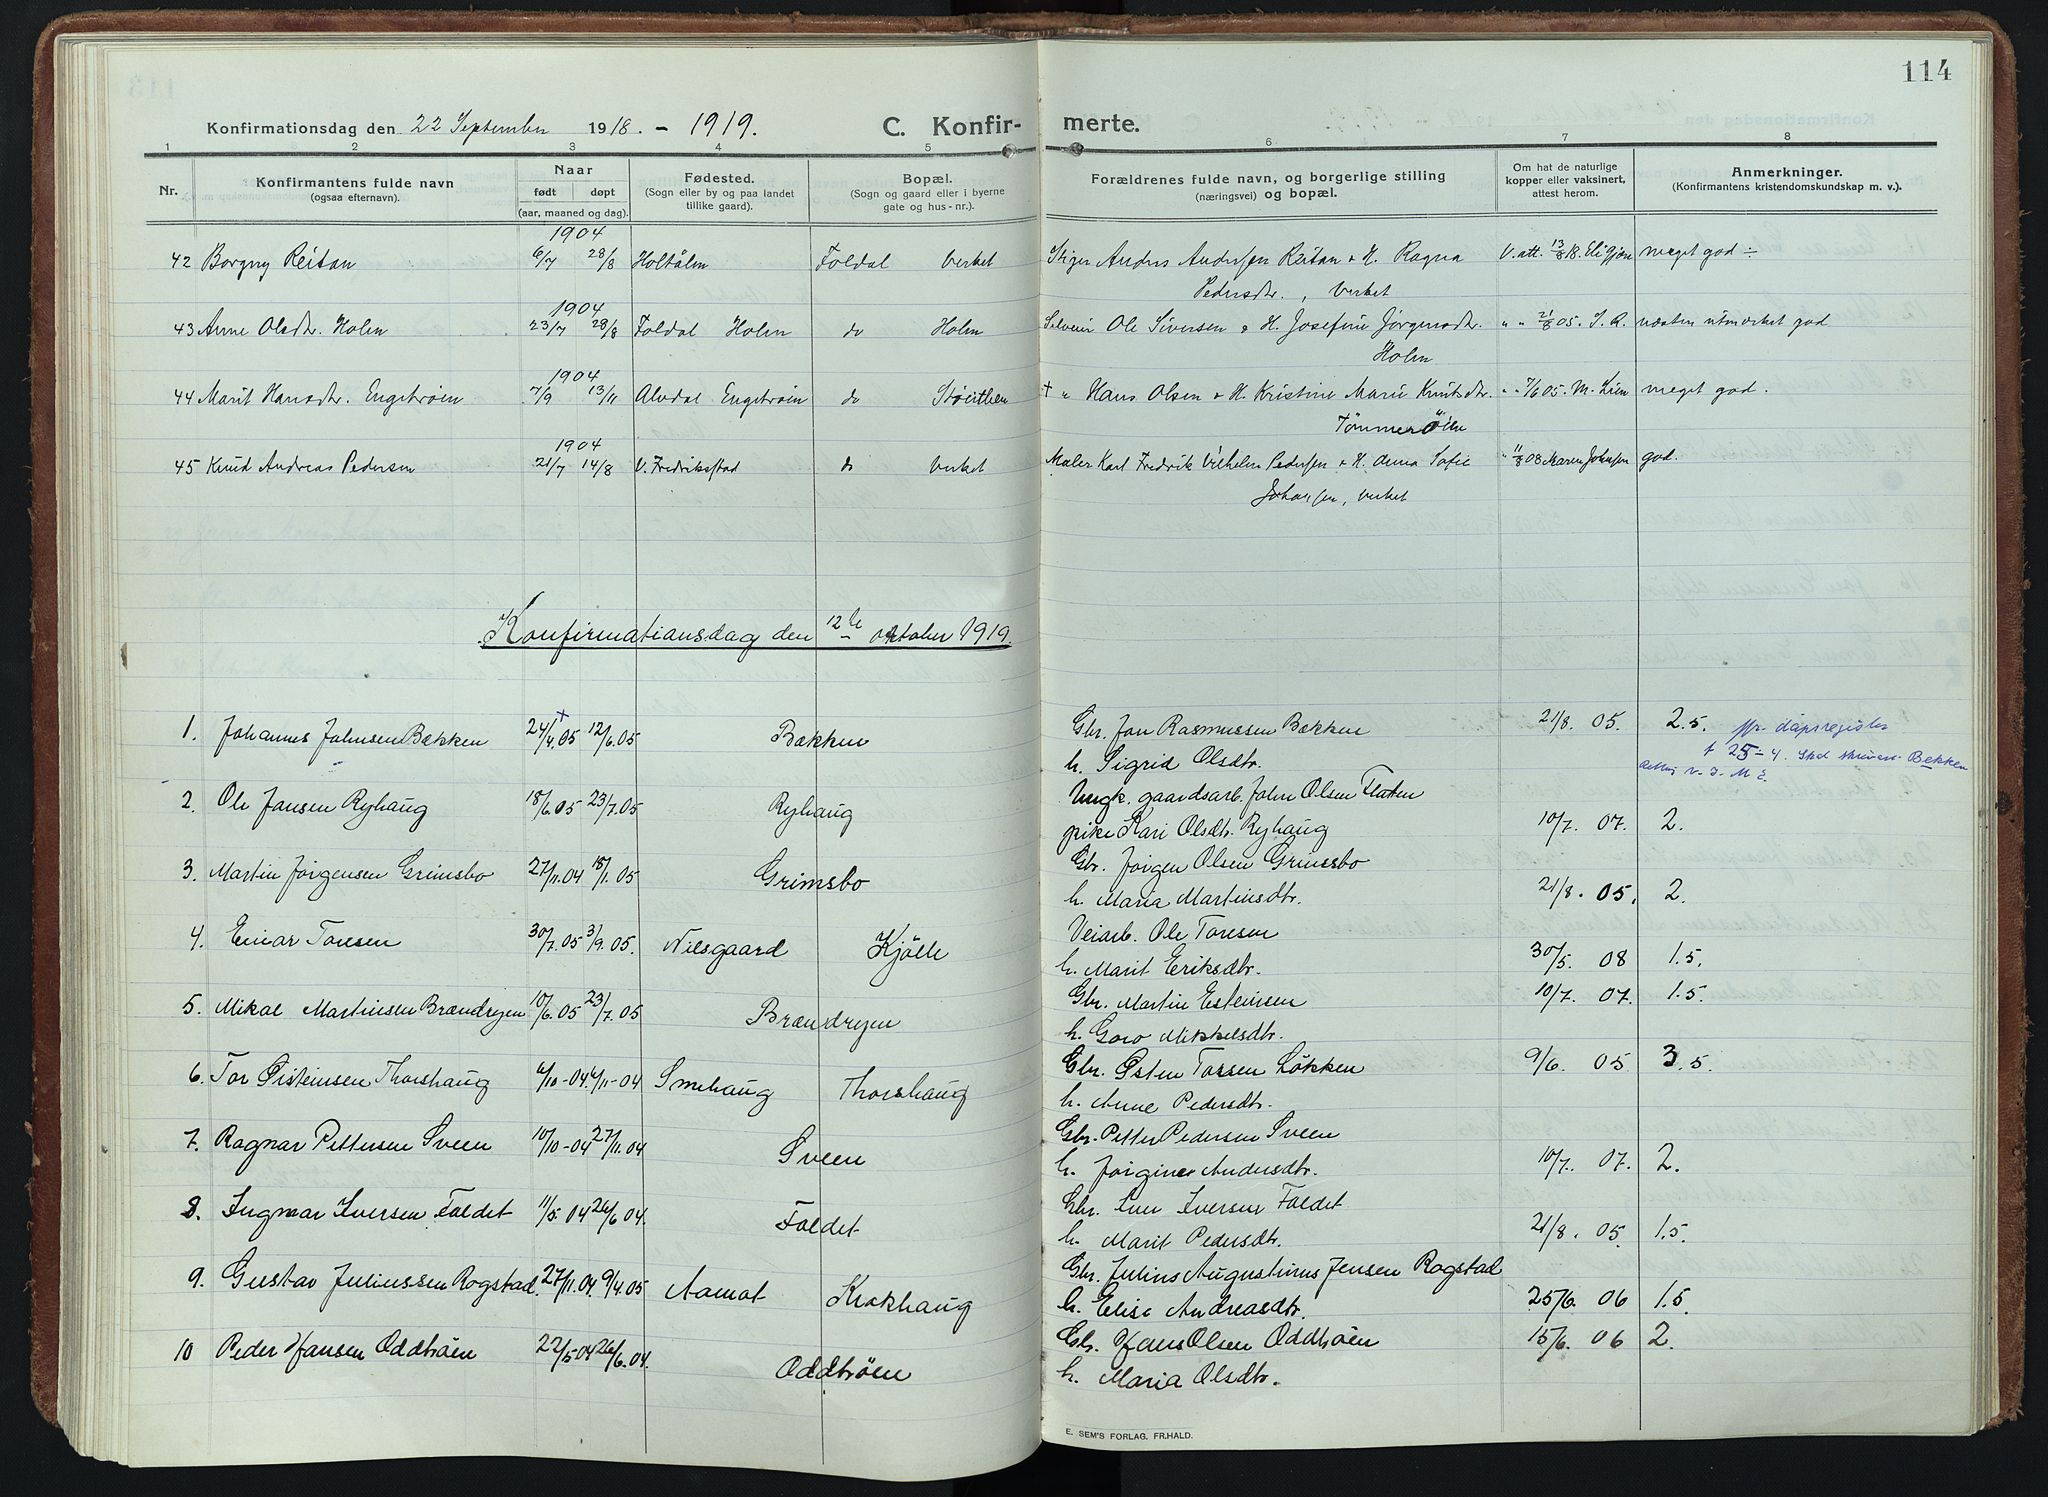 114
Konfirmationsdag den 22 September 1918. - 1919. C. Konfir- merte.
1 2 3 4 5 6 7 8
Nr. Konfirmantens fulde navn (ogsaa efternavn). Naar født døpt (aar, maaned og dag). Fødested. (Sogn eller by og paa landet tillike gaard). Bopæl. (Sogn og gaard eller i byerne gate og hus-nr.). Forældrenes fulde navn, og borgerlige stilling (næringsvei) og bopæl. Om hat de naturlige kopper eller vaksinert, attest herom. Anmerkninger. (Konfirmantens kristendomskundskap m. v.).
1904
42 Borgny Reitan 6/7 28/8 Holtålen Foldal Verket Stiger Anders Andersen Reitan & H. Ragna V. att. 13/8 18. meget god ÷
Pedersdtr., Verket
1904
43 Anne Olsdtr. Holm 23/7 28/8 Foldal Holm do Holm Selveier Ole Siversen & H. Josefine Jørgensdtr. " " 21/8 05. I. R. næsten utmerket god
Holm
1904
44 Marit Hansdtr. Engstrøen 7/9 13/11 Alvdal Engstrøen do Støen + " Hans Olsen & H. Kristine Marie Knutsdtr. " " 7/6 05. M. Lien meget god.
Tömmerölien
1904
45 Knud Andreas Pedersen 21/7 14/8 V. Fredriksstad do Verket Maler Karl Fredrik Vilhelm Pedersen & H. Anna Sofie " 11/8 08 Maren Johnsen god.
Johansen, Verket
Konfirmationsdag den 12te oktober 1919.
1. Johannes Johnsen Bækken 24/4.05 + 12/6.05 Bækken Gbr. Jon Rasmussen Bækken 21/8. 05. 2.5. jfr. dåpsregister
h. Sigrid Olsdtr. f 25-4. Skal skrives Bekken
2. Ole Jansen Ryhaug 18/6.05 23/7.05 Ryhaug Ungk. gaardsarb. John Olsen Flaten
pike Kari Olsdtr. Ryhaug 10/7. 07. 2.
3. Martin Jørgensen Grimsbo 27/11.04 15/1.05 Grimsbo Gbr. Jørgen Olsen Grimsbo
h. Maria Martinsdtr. 21/8. 05. 2.
4. Einar Toresen 30/7.05 3/9.05. Nilsgaard Kjölle Veiarb. Ole Toresen
h. Marit Eriksdtr. 30/5. 08 1.5.
5. Mikal Martinsen Brændryen 10/6.05 23/7.05 Brændryen Gbr. Martin Esteinsen 10/7. 07. 1.5.
h. Goro Mikkelsdtr.
6. Tor Øisteinsen Thorshaug 6/10-04. 6/11-04 Smehaug Thorshaug Gbr. Østen Torsen Løkken 9/6. 05 3.5.
h. Anne Pedersdtr.
7. Ragnar Pettersen Sveen 10/10-04 27/11.04 Sveen Gbr. Petter Pedersen Sveen
h. Jørgine Andersdtr. 10/7. 07. 2.
8. Ingmar Iversen Foldet 11/5.04 26/6.04. Foldet Gbr. Iver Iversen Foldet
h. Marit Pedersdtr. 21/8. 05. 1.5.
9. Gustav Juliussen Rogstad. 27/11.04. 9/4.05 Aamot Krokhaug Gbr. Julius Augustinus Jensen Rogstad
h. Elise Andreasdtr. 25/6. 06 1.5.
10 Peder Hansen Oddtrøen 22/5 04 26/6.04. Oddtrøen Gbr. Hans Olsen Oddtrøen 15/6. 06 2.
h. Maria Olsdtr.
E. SEM'S FORLAG, FR.HALD.